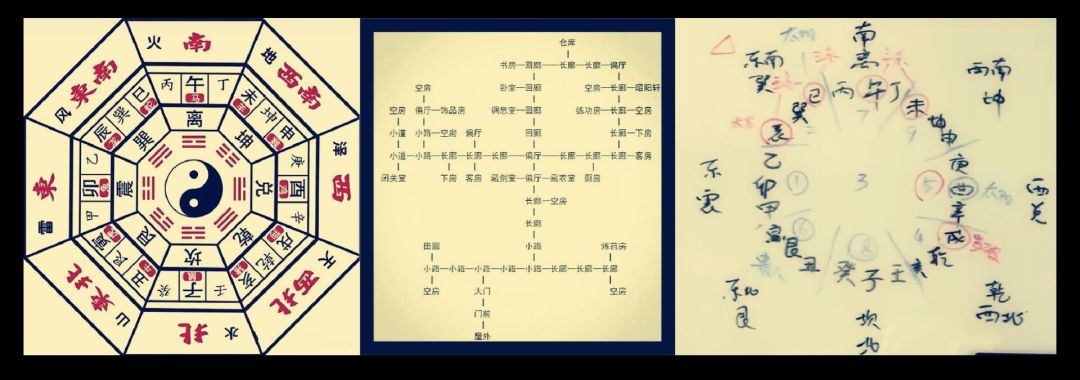 南
火
东南
风
东
雷
东北
山
北
水
西北
天
西
泽
西南
地
丙 午 丁
未 坤 申
庚 酉 辛
戌 乾 亥
壬 子 癸
丑 艮 寅
甲 卯 乙
辰 巽 巳
离
坤
兑
乾
坎
艮
震
巽
仓库
书房—回廊—长廊—长廊—偏厅
空房 卧室—回廊 空房—长廊—昭阳轩
空房 偏厅—饰品房 调息室—回廊 练功房—长廊—空房
小道—小路—空房 偏厅 回廊 长廊—下房
小道—小路—长廊—长廊—长廊—偏厅—长廊—长廊—长廊—客房
闭关室 下房 客房 藏剑室—偏厅—藏衣室 厨房
长廊—空房
长廊
田圃 小路 炼药房
小路—小路—小路—小路—小路—长廊—长廊—长廊
空房 大门 空房
门前
屋外
南
离
东南
巽
西南
坤
巳 丙 午 丁 未
巽
辰
坤申
乙
卯
甲
寅
艮
丑
庚
酉
辛
戌
乾
亥
癸 子 壬
东
震
西
兑
1
3
5
7
9
4
8
东北
艮
坎
北
乾
西北